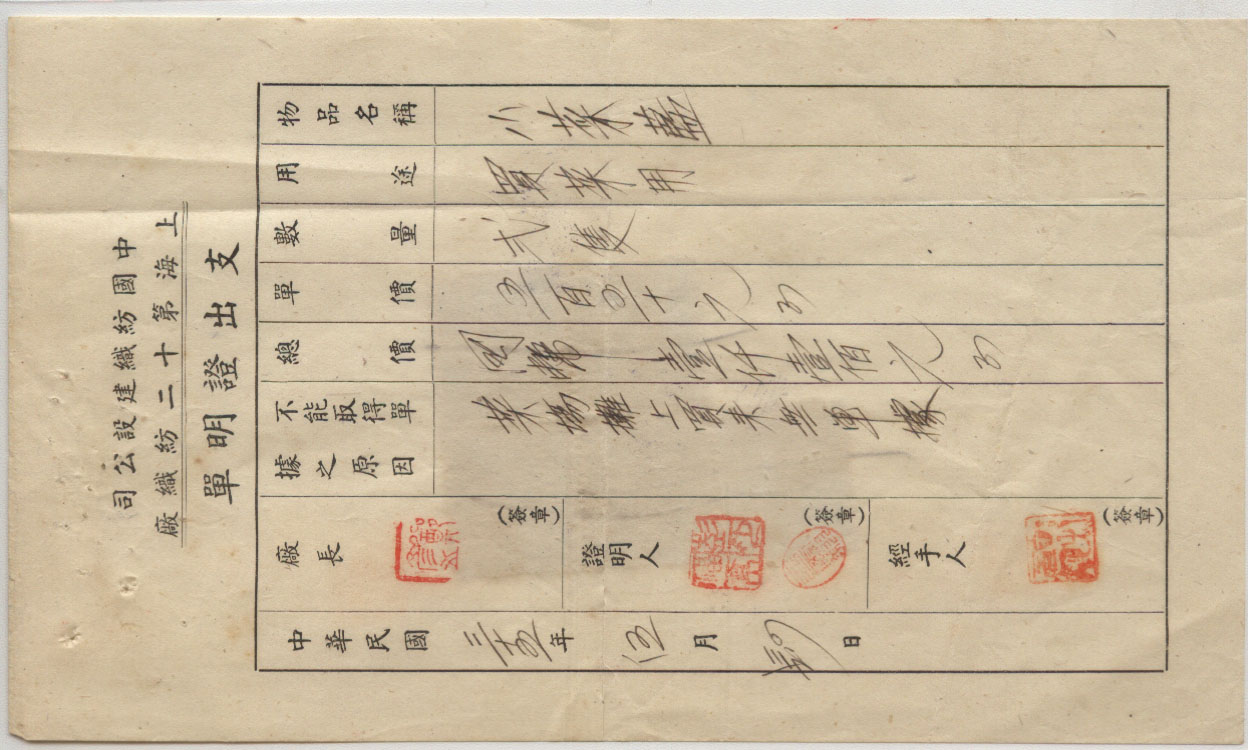 中國紡織建設公司
上海第十二紡織廠
支出證明單
物品名稱 小菜籃
用途 買菜用
數量 弍隻
單價 五百五十元正
總價 國幣壹仟壹佰元正
不能取得單據之原因 菜場攤上買來無單據
廠長 (簽章)
證明人 (簽章)
經手人 (簽章)
中華民國三五年伍月 日